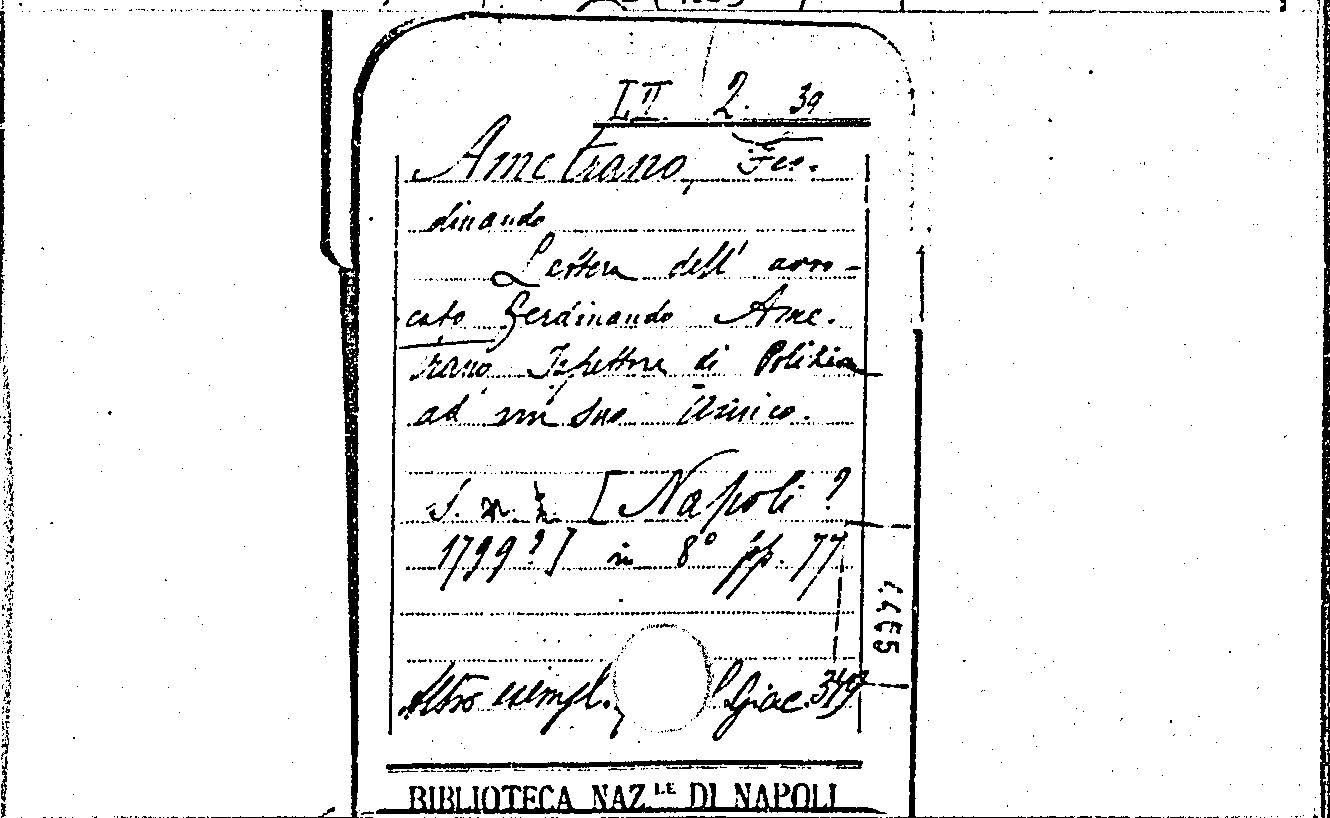 I. II. 2. 39
Ametrano, Fer-
dinando
Lettera dell' avvo-
cato Ferdinando Ame-
trano Ispettore di Polizia
ad un suo Amico.
S. n. t. [Napoli ?
1799 ?] in 8° pp. 77
Altro esempl. Giac. 349
BIBLIOTECA NAZ.LE DI NAPOLI